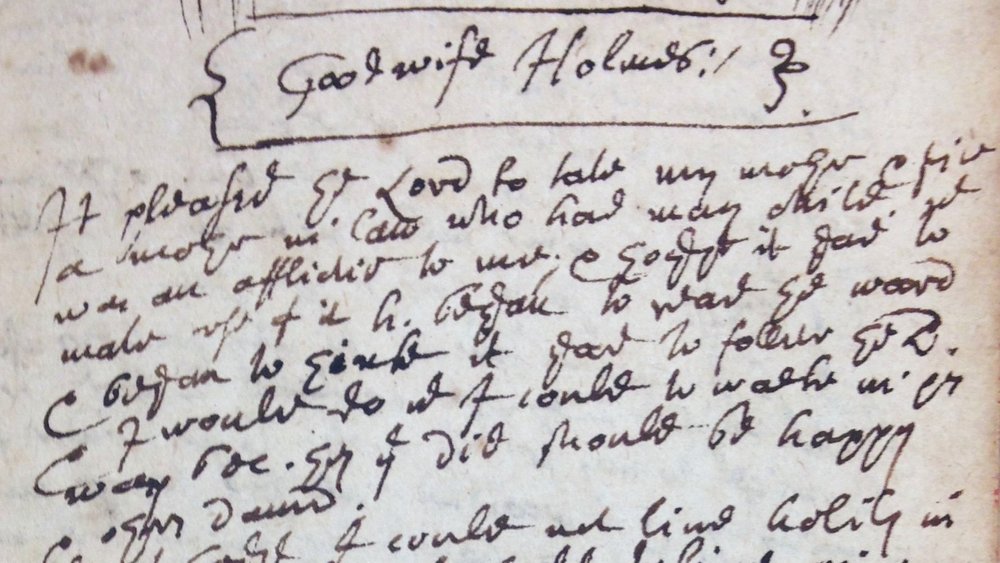 Goodwife Holmes:/
It pleased ye Lord to take my mother &
a mother in law who had many child: wc
was an afflictio to me: & thought it hard to
make use of it & began to read ye word
& began to thinke it hard to follow ye L.
I would do wt I could to walke in yr
way bec. they yt did should be happy
& others damd.
I could not live holily in